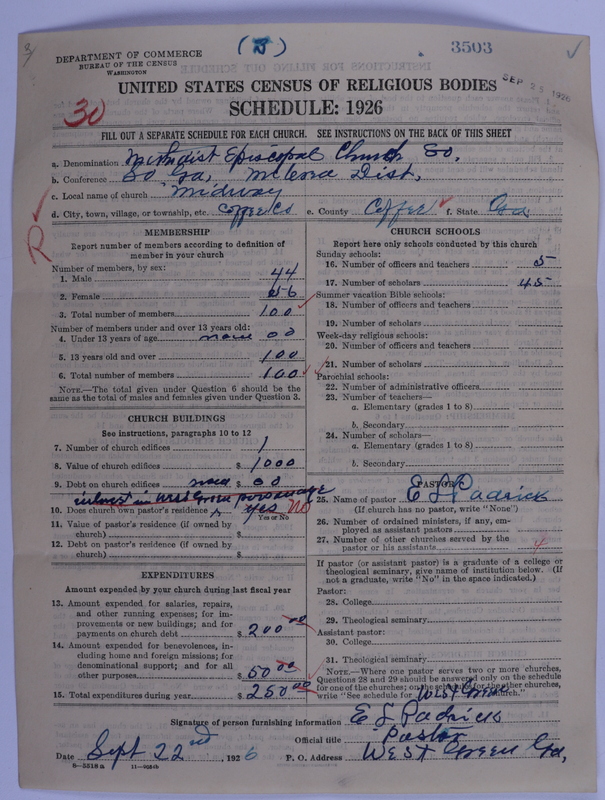 3/
(5)
3503
✓
DEPARTMENT OF COMMERCE
BUREAU OF THE CENSUS
WASHINGTON
UNITED STATES CENSUS OF RELIGIOUS BODIES
SEP 25 1926
SCHEDULE: 1926
30
FILL OUT A SEPARATE SCHEDULE FOR EACH CHURCH. SEE INSTRUCTIONS ON THE BACK OF THIS SHEET
a. Denomination Methodist Episcopal Church So.
b. Conference So Ga, McRea Dist,
c. Local name of church Midway
d. City, town, village, or township, etc. Coffee Co e. County Coffee ✓ f. State Ga
R
MEMBERSHIP
Report number of members according to definition of
member in your church
Number of members, by sex:
1. Male 44
2. Female 56
3. Total number of members 100 ✓
Number of members under and over 13 years old:
4. Under 13 years of age none 00
5. 13 years old and over 100
6. Total number of members 100 ✓
NOTE.—The total given under Question 6 should be
same as the total of males and females given under Question 3.
CHURCH BUILDINGS
See instructions, paragraphs 10 to 12
7. Number of church edifices 1
8. Value of church edifices $ 1000
9. Debt on church edifices none $ 00
interest in West Green parsonage
10. Does church own pastor's residence? yes No
Yes or No
11. Value of pastor's residence (if owned by
church) $
12. Debt on pastor's residence (if owned by
church) $
EXPENDITURES
Amount expended by your church during last fiscal year
13. Amount expended for salaries, repairs,
and other running expenses; for im-
provements or new buildings; and for
payments on church debt $ 200 00
14. Amount expended for benevolences, in-
cluding home and foreign missions; for
denominational support; and for all
other purposes $ 50 00
15. Total expenditures during year $ 250 00
CHURCH SCHOOLS
Report here only schools conducted by this church
Sunday schools:
16. Number of officers and teachers 5
17. Number of scholars 45
Summer vacation Bible schools:
18. Number of officers and teachers
19. Number of scholars
Week-day religious schools:
20. Number of officers and teachers
21. Number of scholars
Parochial schools:
22. Number of administrative officers
23. Number of teachers—
a. Elementary (grades 1 to 8)
b. Secondary
24. Number of scholars—
a. Elementary (grades 1 to 8)
b. Secondary
PASTOR
25. Name of pastor E L Padrick
(If church has no pastor, write "None")
26. Number of ordained ministers, if any, em-
ployed as assistant pastors
27. Number of other churches served by the
pastor or his assistants 4
If pastor (or assistant pastor) is a graduate of a college or
theological seminary, give name of institution below. (If
not a graduate, write "No" in the space indicated.)
Pastor:
28. College
29. Theological seminary
Assistant pastor:
30. College
31. Theological seminary
NOTE.—Where one pastor serves two or more churches,
Questions 28 and 29 should be answered only on the schedule
for one of the churches; on the schedules for the other churches,
write "See schedule for West Green church."
Signature of person furnishing information E L Padrick
Official title Pastor
Date Sept 22nd, 1926 P. O. Address West Green Ga,
8—5518a 11—9054b